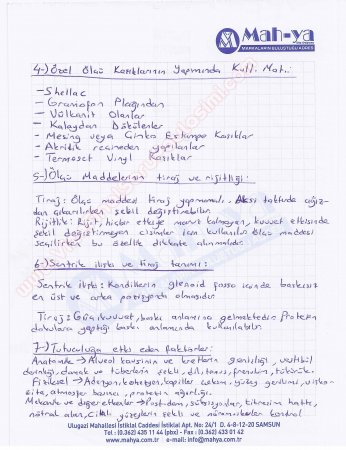 Mah-ya
MARKALARIN BULUŞTUĞU ADRES
4-) Özel Ölçü Kaşıklarının Yapımında Kull. Mat.:
- Shellac
- Gramofon Plağından
- Vülkanit Olanlar
- Kalaydan Dökülenler
- Mesing veya Çinko Estampo Kaşıklar
- Akrilik reçineden yapılanlar
- Termoset Vinyl Kaşıklar
5-) Ölçü Maddelerinin tiraj ve rijitliği:
Tiraj: Ölçü maddesi tiraj yapmamalı. Aksi taktirde ağız-
dan çıkarılırken şekil değiştirebilir.
Rijitlik: Rijit, hiçbir etkiye maruz kalmayan, kuvvet etkisinde
şekil değiştirmeyen cisimler için kullanılır. Ölçü maddesi
seçilirken bu özellik dikkate alınmalıdır.
6-) Sentrik ilişki ve Tiraj tanımı:
Sentrik ilişki: Kondillerin glenoid fossa içinde baskısız
en üst ve arka pozisyonda olmasıdır.
Tiraj: Güç, kuvvet, baskı anlamına gelmektedir. Protezin
dokulara yaptığı baskı anlamında kullanılabilir.
7-) Tutuculuğa etki eden faktörler:
Anatomik → Alveol kavsinin ve kretlerin genişliği, vestibül
derinliği, damak ve tüberlerin şekli, dil, torus, frenulum, tükürük.
Fiziksel → Adezyon, kohezyon, kapiller çekim, yüzey gerilimi, viskoz-
ite, atmosfer basıncı, protezin ağırlığı.
Mekanik ve diğer etkenler → Postdam,
nötral alan,
Ulugazi Mahallesi İstiklal Caddesi İstiklal Apt. No: 24/1 D. 4-8-12-20 SAMSUN
Tel: (0.362) 435 11 44 (pbx) - Fax : (0.362) 433 01 42
www.mahya.com.tr e-mail: info@mahya.com.tr